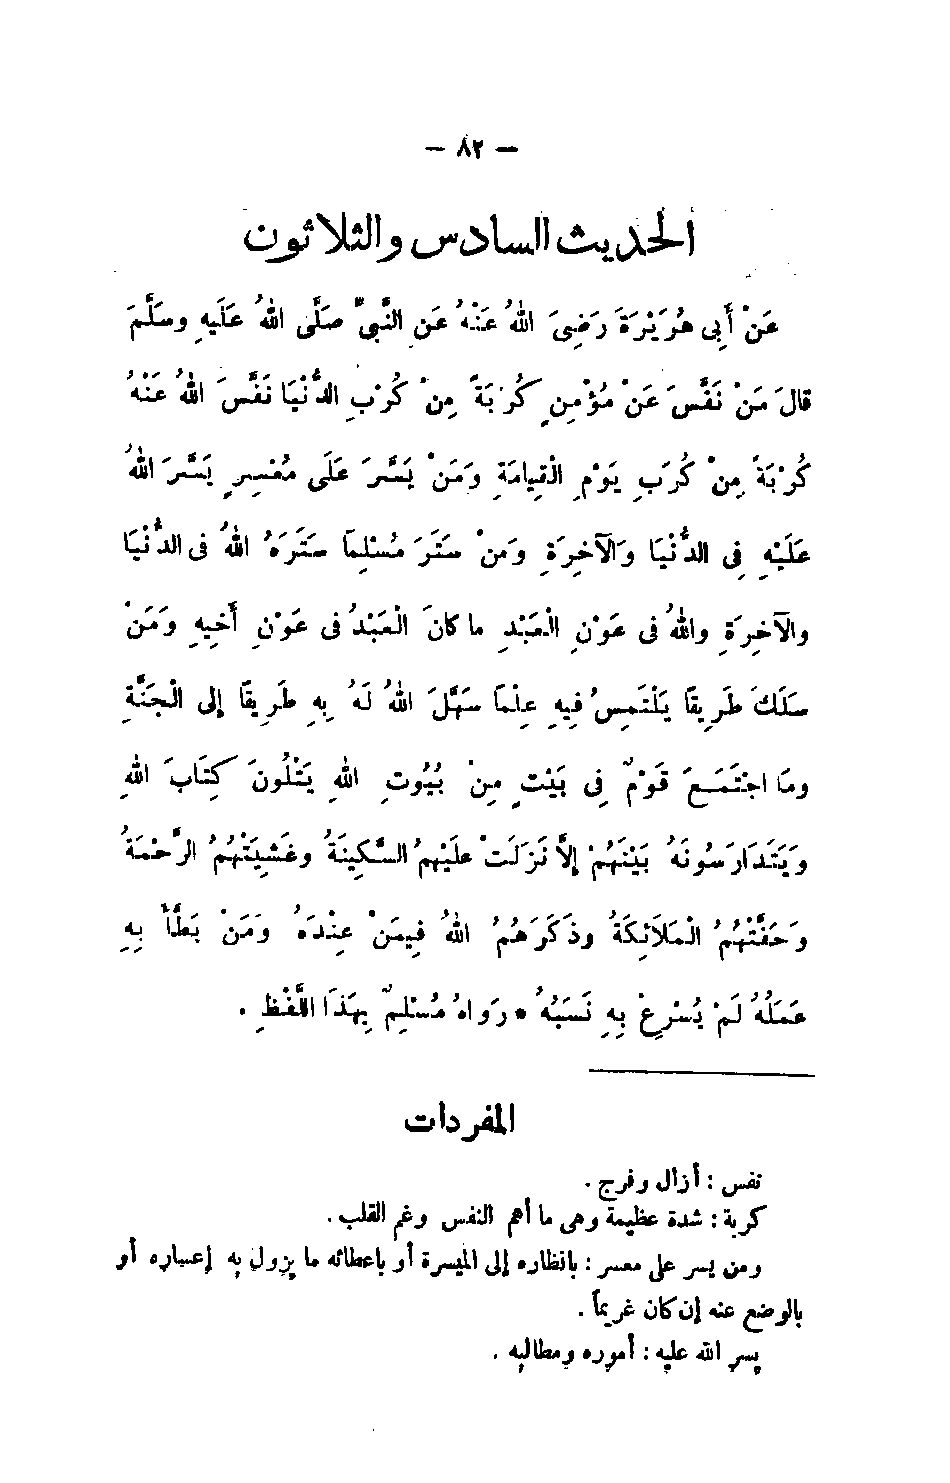 — ٨٢ —
الحديث السادس والثلاثون
عَنْ أَبِى هُرَيْرَةَ رَضِىَ اللهُ عَنْهُ عَنِ النَّبِىِّ صَلَّى اللهُ عَلَيهِ وسَلَّمَ
قالَ مَنْ نَفَّسَ عَنْ مُؤْمِنٍ كُرْبَةً مِنْ كُرَبِ الدُّنْيَا نَفَّسَ اللهُ عَنْهُ
كُرْبَةً مِنْ كُرَبِ يَوْمِ الْقِيامَةِ وَمَنْ يَسَّرَ عَلَى مُعْسِرٍ يَسَّرَ اللهُ
عَلَيْهِ فِى الدُّنْيَا وَالْآخِرَةِ وَمَنْ سَتَرَ مُسْلِماً سَتَرَهُ اللهُ فى الدُّنْيَا
والآخِرَةِ واللهُ فى عَوْنِ الْعَبْدِ ما كانَ الْعَبْدُ فى عَوْنِ أَخِيهِ وَمَنْ
سَلَكَ طَرِيقاً يَلْتَمِسُ فِيهِ عِلْماً سَهَّلَ اللهُ لَهُ بِهِ طَرِيقاً إلى الْجَنَّةِ
ومَا اجْتَمَعَ قَوْمٌ فِى بَيْتٍ مِنْ بُيُوتِ اللهِ يَتْلُونَ كِتَابَ اللهِ
وَيَتَدَارَسُونَهُ بَيْنَهُمْ إلَّا نَزَلَتْ عَلَيْهِمُ السَّكِينَةُ وغَشِيَتْهُمُ الرَّحْمَةُ
وَحَفَّتْهُمُ الْمَلَائِكَةُ وذَكَرَهُمُ اللهُ فِيمَنْ عِنْدَهُ وَمَنْ بَطَّأَ بِهِ
عَمَلُهُ لَمْ يُسْرِعْ بِهِ نَسَبُهُ * رَوَاهُ مُسْلِمٌ بِهَذَا اللَّفْظِ .
المفردات
نفس : أزال وفرج .
كربة : شدة عظيمة وهى ما أهم النفس وغم القلب .
ومن يسر على معسر : بانظاره إلى الميسرة أو باعطائه ما يزول به إعساره أو
بالوضع عنه إن كان غريماً .
يسر الله عليه : أموره ومطالبه .